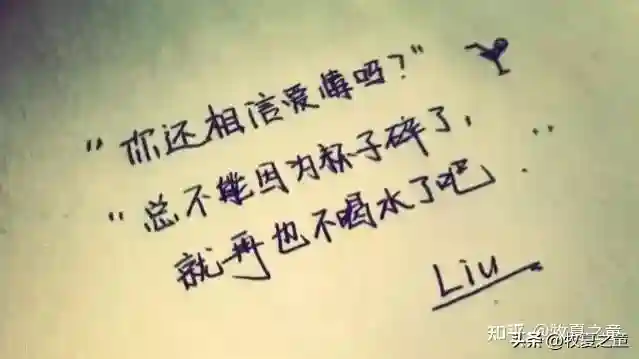 "你还相信爱情吗?"
"总不能因为杯子碎了,
就再也不喝水了吧..."
Liu
知乎 @牧夏之童
头条 @牧夏之童